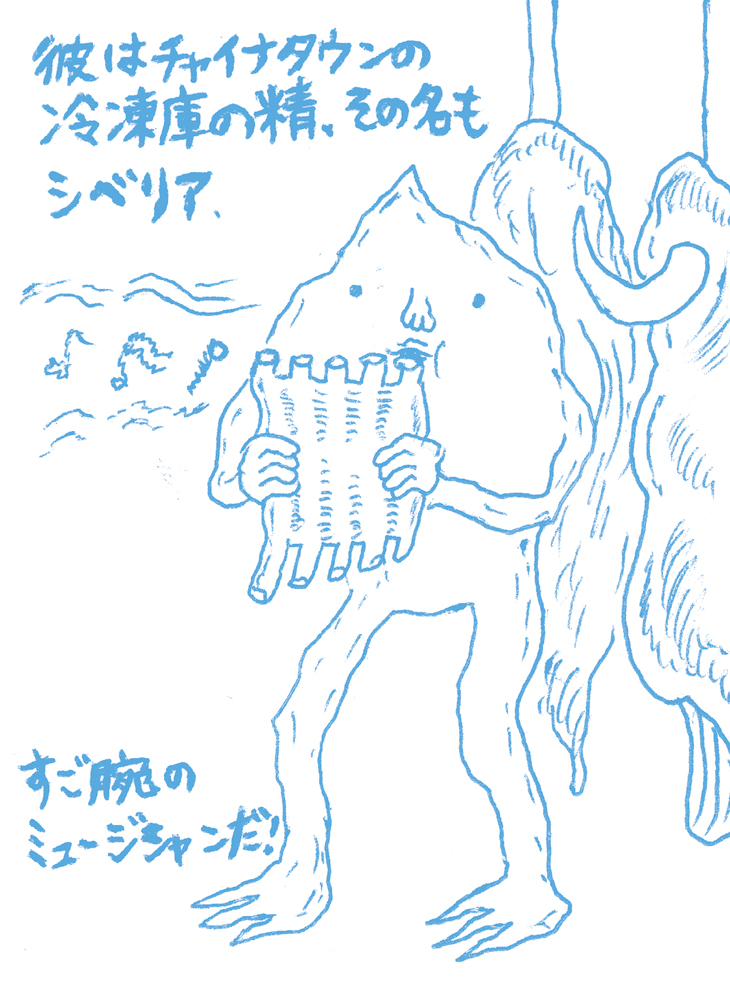 彼はチャイナタウンの
冷凍庫の精、その名も
シベリア、
すご腕の
ミュージシャンだ!